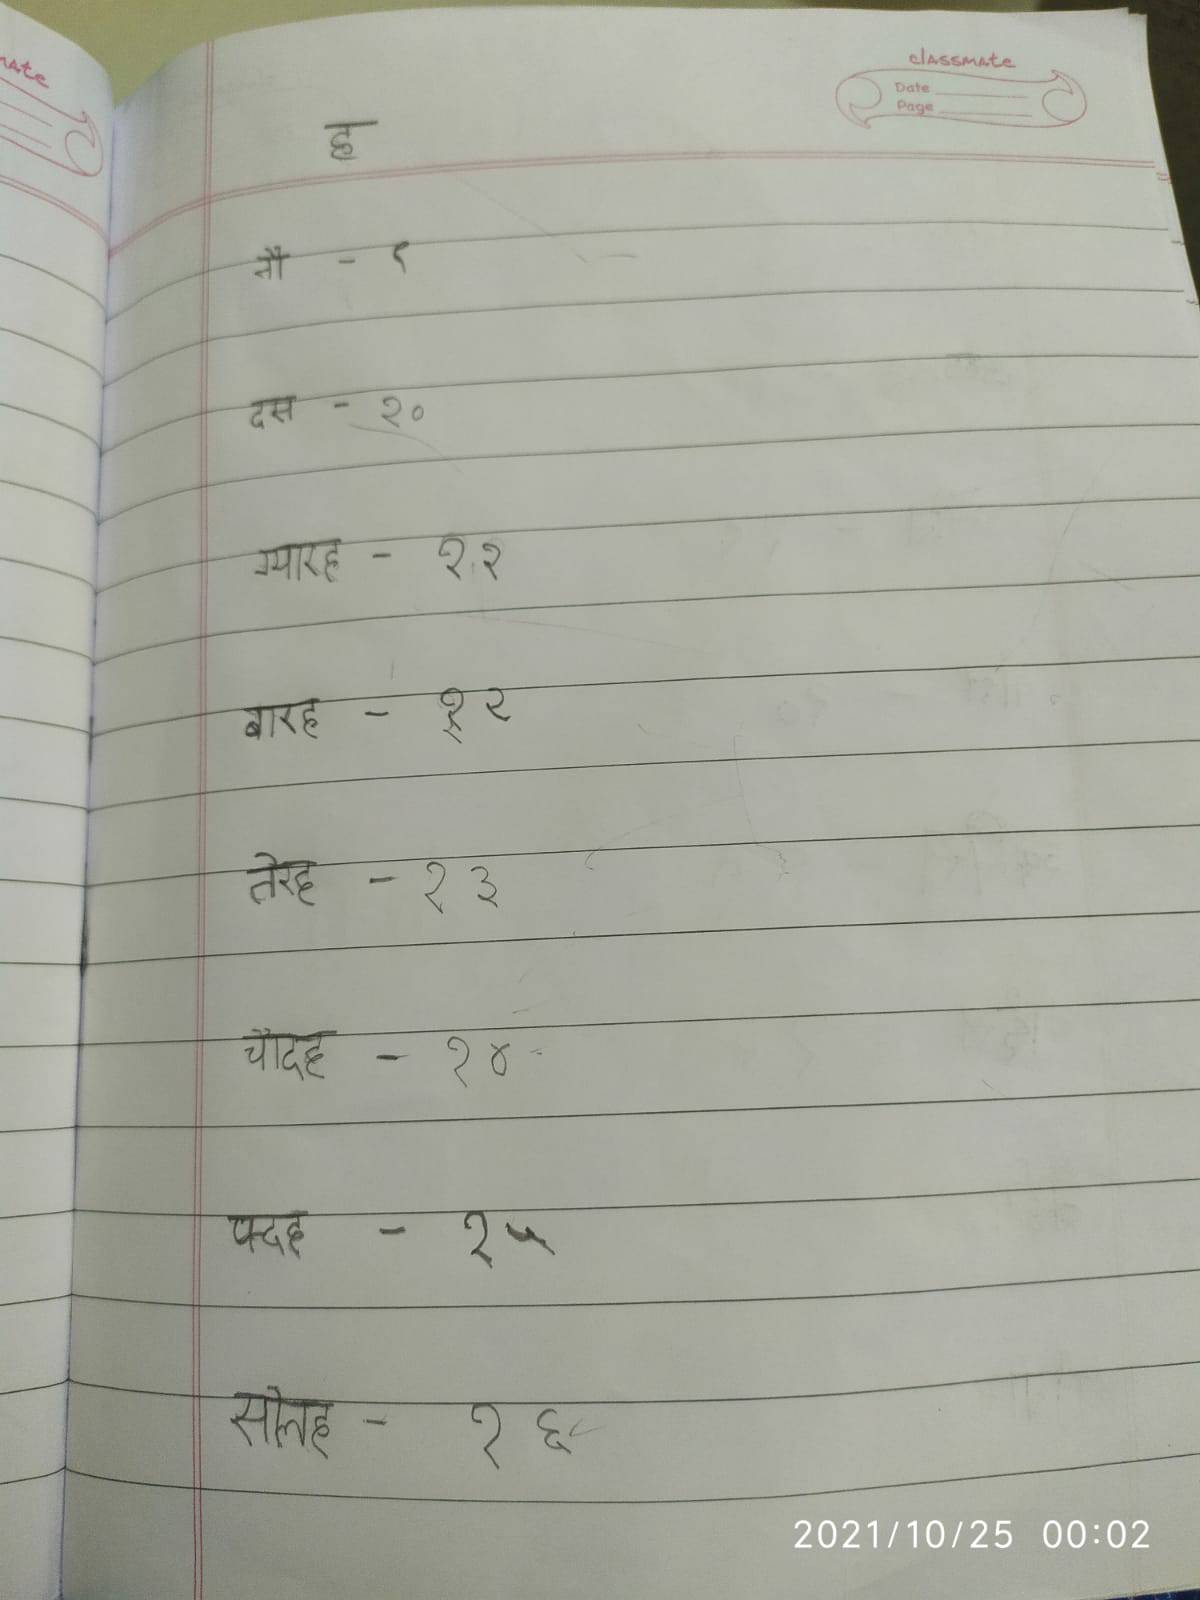 mate
classmate
Date
Page
ह
नौ - ९
दस - १०
ग्यारह - १२
बारह - १२
तेरह - १३
चौदह - १४
पद्रह - १५
सोलह - १६
2021/10/25 00:02